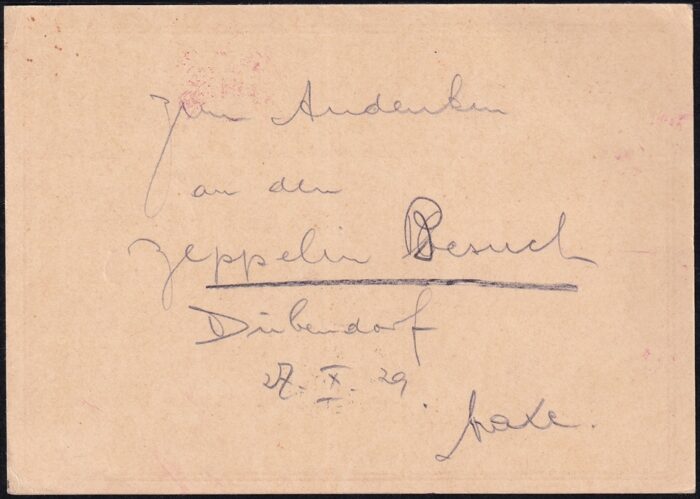 Zum Andenken
an den
Zeppelin Besuch
Dübendorf
27. X. 29.